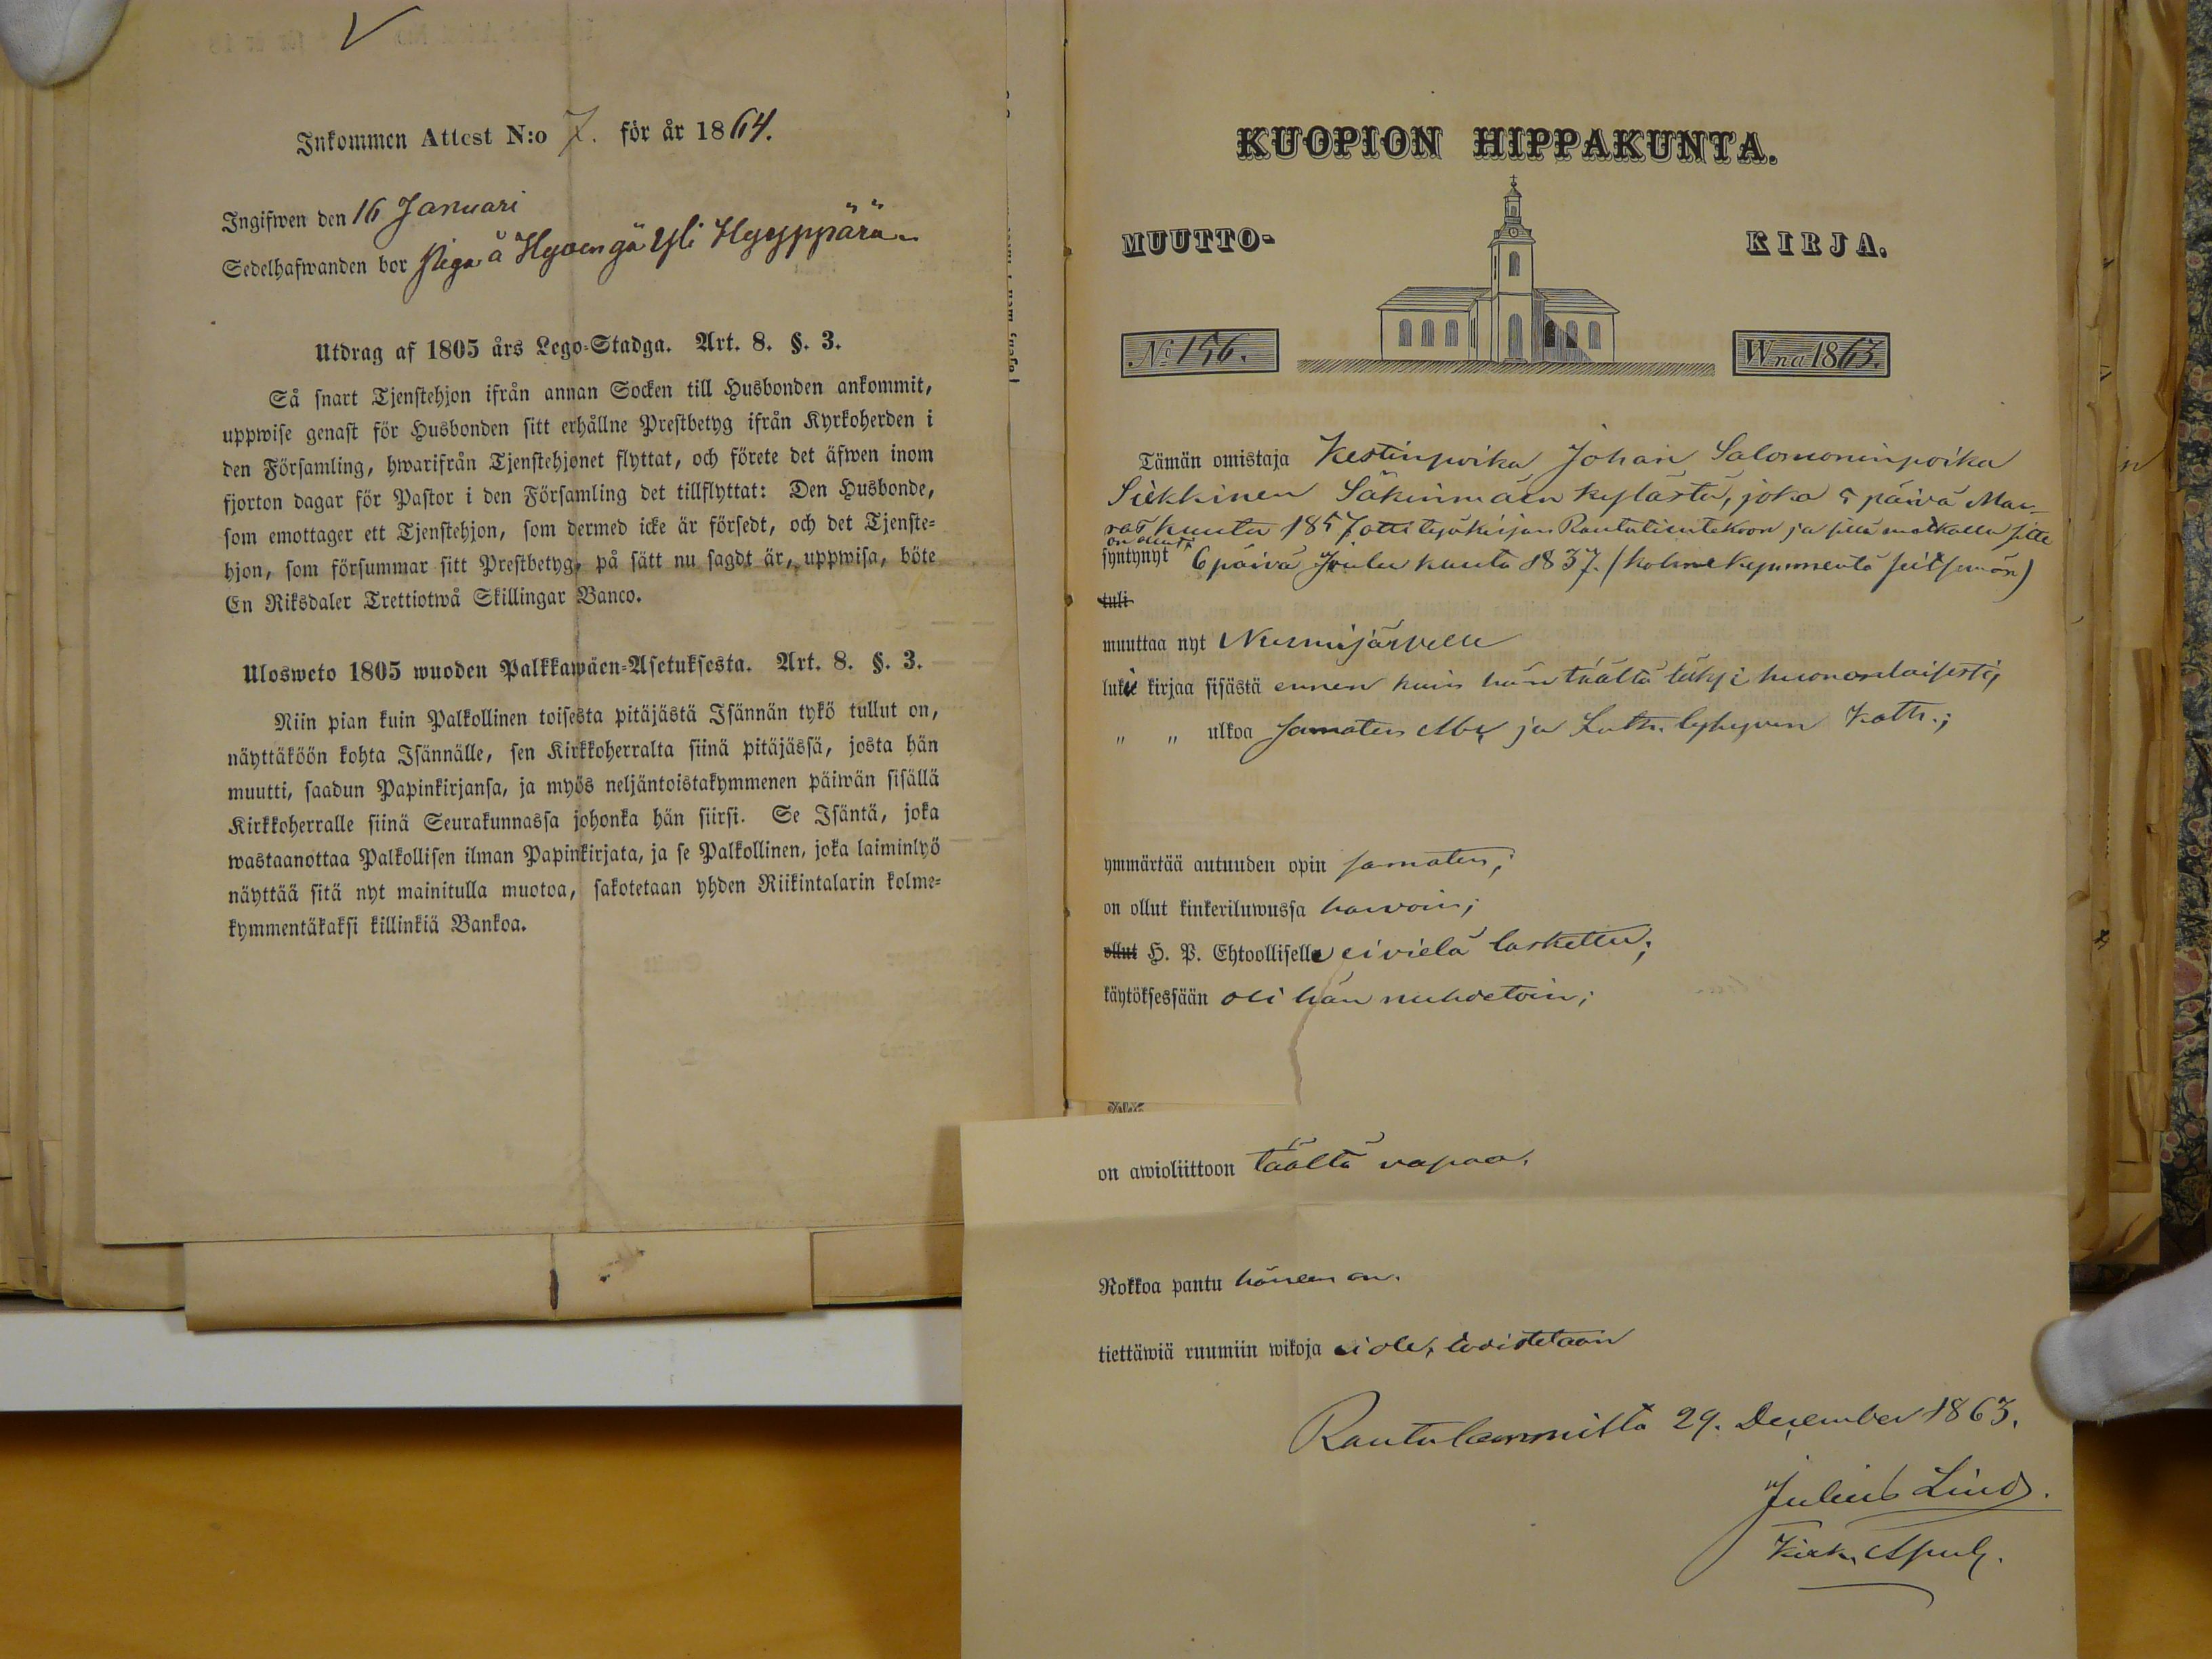 Inkommen Attest N:o 7. för år 1864.
Ingifwen den 16 Januari
Sedelhafwanden bor å Hyvingä Yli Hyyppärä
Utdrag af 1805 års Lego-Stadga. Art. 8. §. 3.
Så snart Tjenstehjon ifrån annan Socken till Husbonden ankommit,
uppwise genast för Husbonden sitt erhållne Prestbetyg ifrån Kyrkoherden i
den Församling, hwarifrån Tjenstehjonet flyttat, och förete det äfwen inom
fjorton dagar för Pastor i den Församling det tillflyttat: Den Husbonde,
som emottager ett Tjenstehjon, som dermed icke är försedt, och det Tjenste-
hjon, som försummar sitt Prestbetyg, på sätt nu sagdt är, uppwisa, böte
En Riksdaler Trettiotwå Skillingar Banco.
Ulosweto 1805 wuoden Palkkawäen-Asetuksesta. Art. 8. §. 3.
Niin pian kuin Palkollinen toisesta pitäjästä Isännän tykö tullut on,
näyttäköön kohta Isännälle, sen Kirkkoherralta siinä pitäjässä, josta hän
muutti, saadun Papinkirjansa, ja myös neljäntoistakymmenen päiwän sisällä
Kirkkoherralle siinä Seurakunnassa johonka hän siirsi. Se Isäntä, joka
wastaanottaa Palkollisen ilman Papinkirjata, ja se Palkollinen, joka laiminlyö
näyttää sitä nyt mainitulla muotoa, sakotetaan yhden Riikintalarin kolme-
kymmentäkaksi killinkiä Bankoa.
KUOPION HIPPAKUNTA.
MUUTTO- KIRJA.
No 156. Wna 1863.
Tämän omistaja Kestinpoika Johan Salomoninpoika
Siekkinen Säkinmäen kylästä, joka 5 päivä Mar-
ras kuuta 1857 otti työkirjan Rautatientekoon ja sillä matkalla sitte
on ollut
syntynyt 6 päivä Joulu kuuta 1837. (kolmekymmentä seitsemän)
tuli
muuttaa nyt Nurmijärvelle
luki kirjaa sisästä ennen kuin hän täältä läksi huononlaisesti,
" " ulkoa samaten Abc ja Luth. lyhyven Kath.;
ymmärtää autuuden opin samaten;
on ollut kinkeriluwussa harvoin;
ollut H. P. Ehtoollisella ei vielä laskettu;
käytöksessään oli hän nuhdetoin;
on awioliittoon täältä vapaa.
Rokkoa pantu häneen on.
tiettäwiä ruumiin wikoja ei ole, todistetaan
Rautalammilta 29. December 1863.
Julius Lind.
Kirk. Apul.